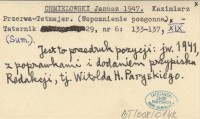 CHMIELOWSKI Janusz 1947. Kazimierz
Przerwa-Tetmajer. (Wspomnienie pozgonne)
Taternik 29, nr 6: 133-137, XIX
(Sum.)
Jest to przedruk pozycji: jw. 1941,
z poprawkami i dodaniem przypisku
Redakcji, tj. Witolda H. Paryskiego.